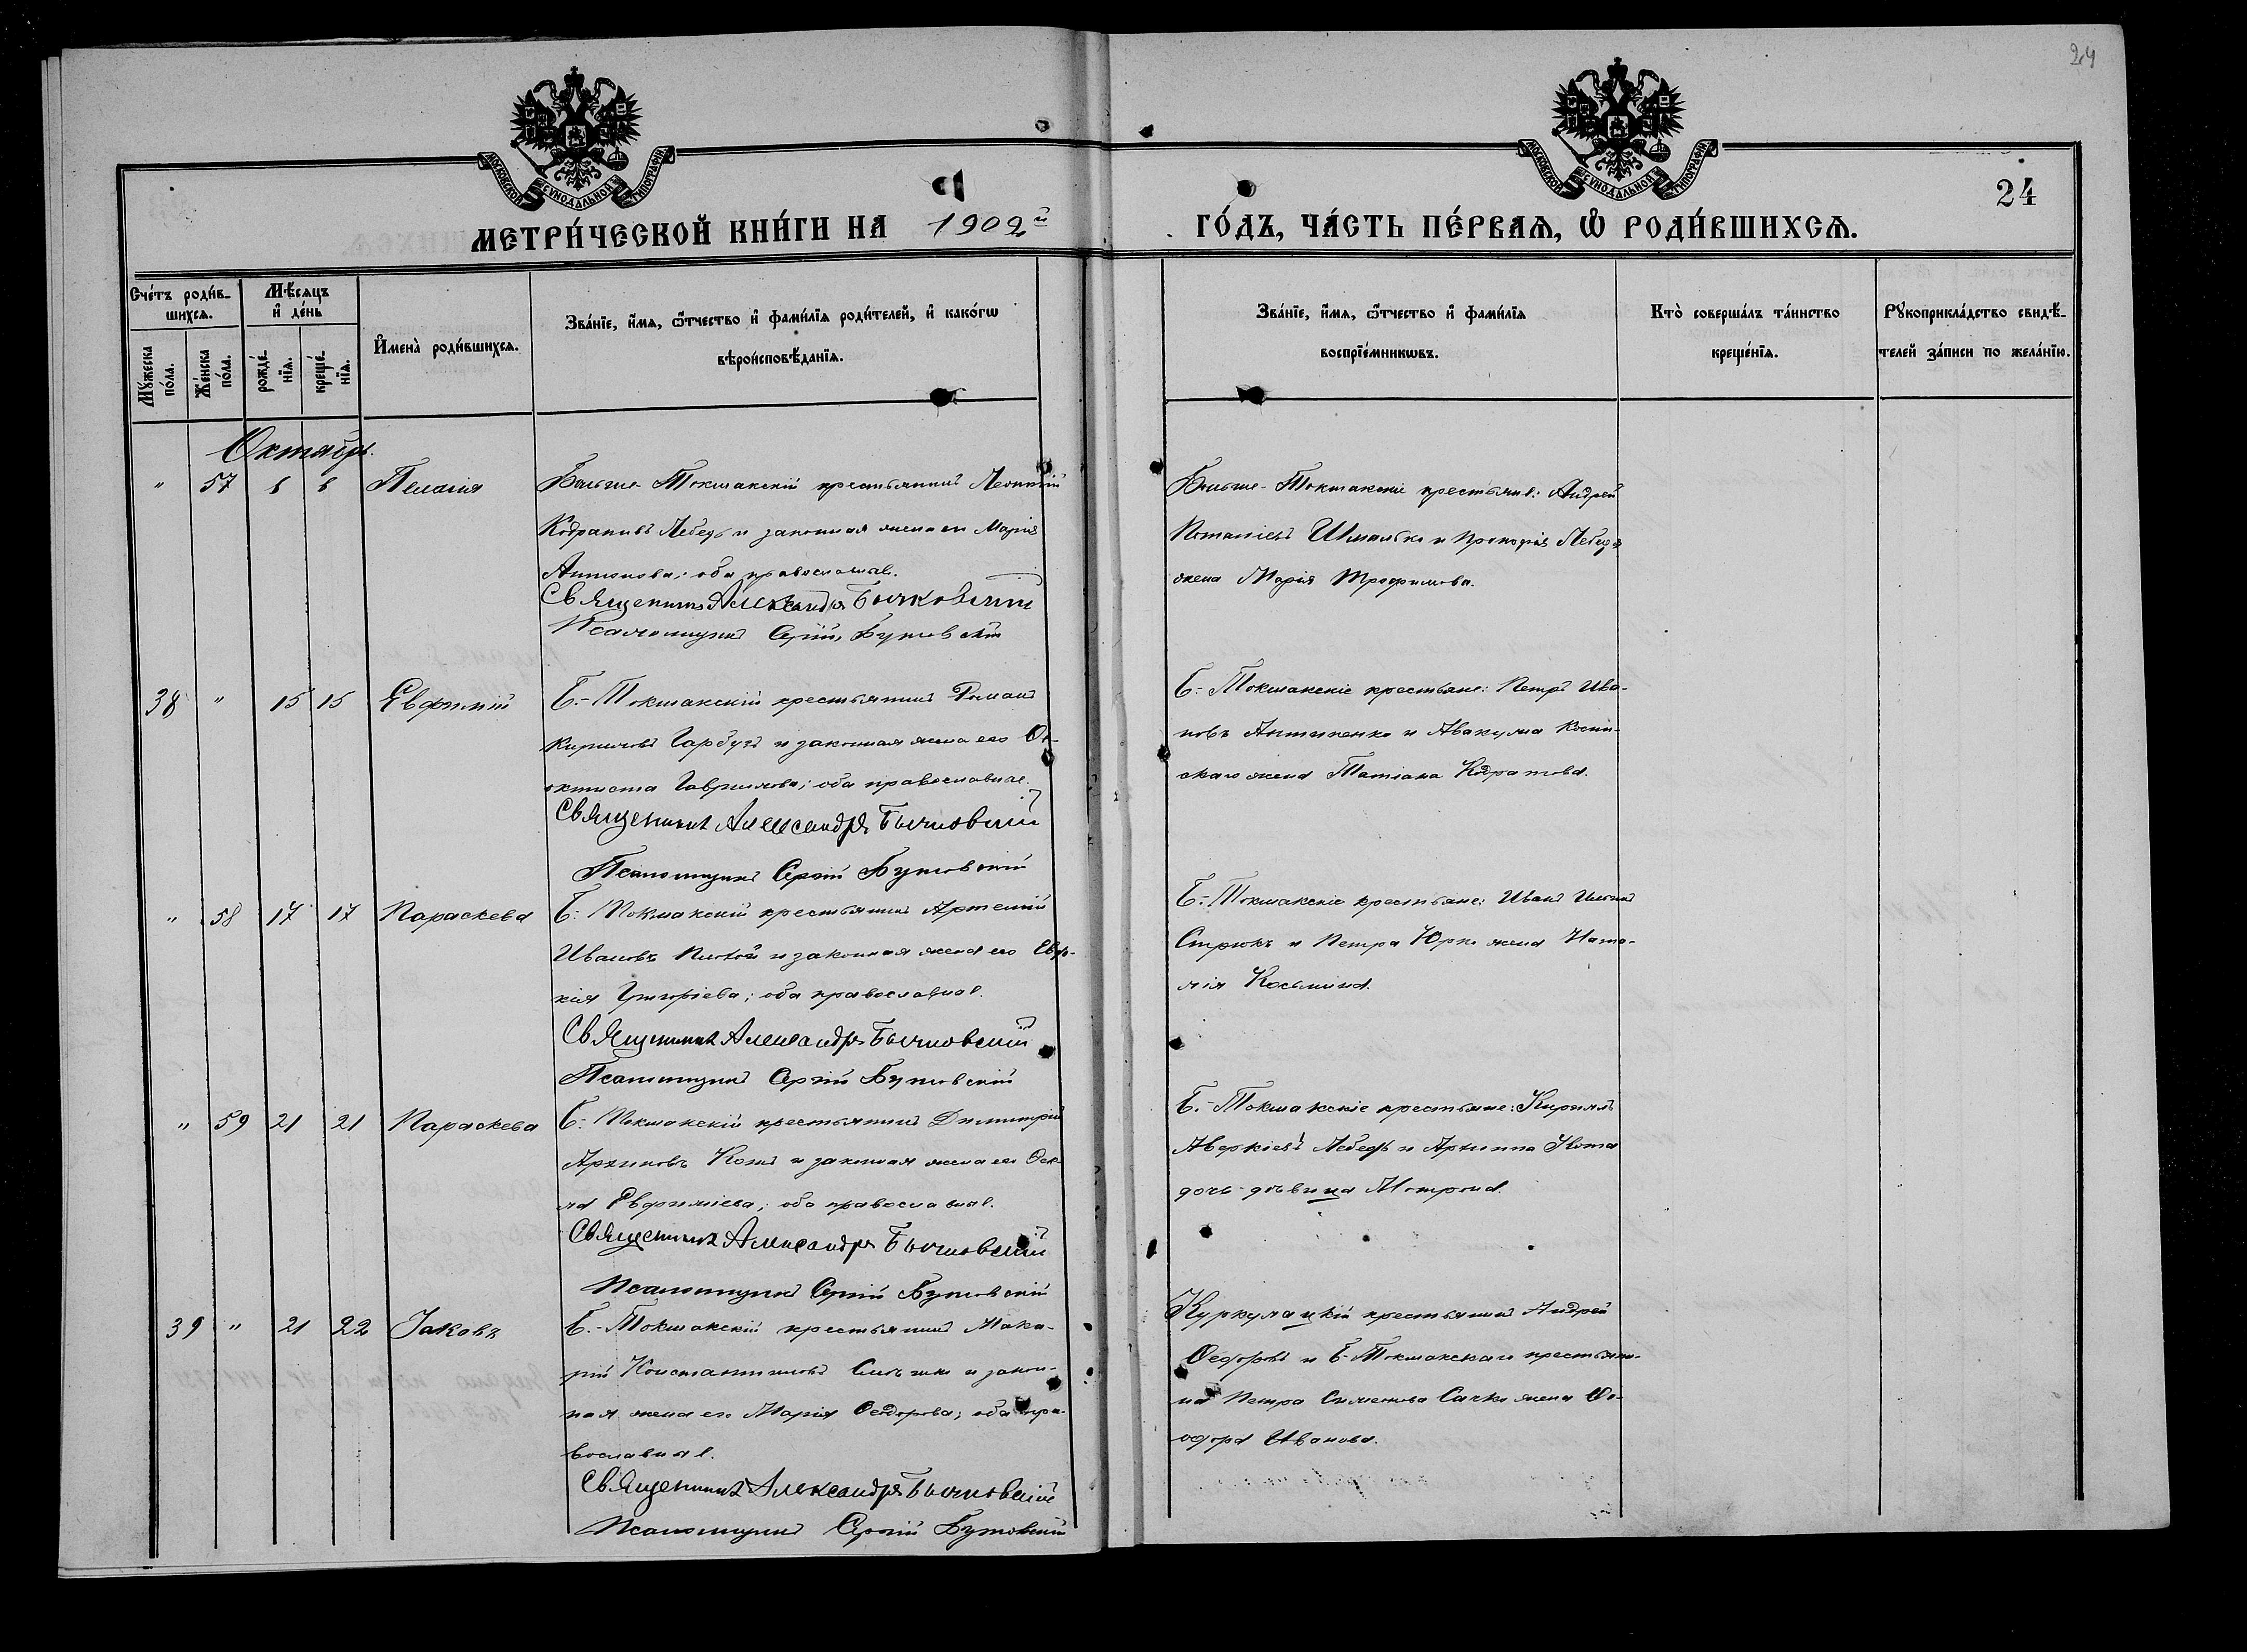 24
МОСКОВСКОЙ СѴНОДАЛЬНОЙ ТИПОГРАФІИ
МОСКОВСКОЙ СѴНОДАЛЬНОЙ ТИПОГРАФІИ
24
МЕТРИ́ЧЕСКОЙ КНИ́ГИ НА 1902й ГО́ДЪ, ЧА́СТЬ ПЕ́РВАѦ, Ѡ РОДИ́ВШИХСѦ.
Счéтъ роди́в-
шихсѧ.
Мꙋ́жеска по́ла.
Же́нска по́ла.
Мѣ́сѧцъ
и҆ де́нь
рожде́-
нїѧ.
креще́-
нїѧ.
И҆мена̀ роди́вшихсѧ.
Зва́нїе, и҆́мѧ, ѻ҆́тчество и҆ фами́лїѧ роди́телей, и҆ како́гѡ
вѣроисповѣ́данїѧ.
Зва́нїе, и҆́мѧ, ѻ҆́тчество и҆ фами́лїѧ
воспрїе́мникѡвъ.
Кто̀ соверша́лъ та́инство
креще́нїѧ.
Рꙋкоприкла́дство свидѣ́-
телей за́писи по жела́нїю.
Октябрь.
" 57 8 8 Пелагія
Больше-Токмакскій крестьянинъ Леонтій
Кодратовъ Лебедь и законная жена его Марія
Антонова; оба православные.
Священникъ Александръ Бычковскій
Псаломщикъ Сергій Бутовскій
Больше-Токмакскіе крестьяне: Андрей
Потапіевъ Шмалько и Прокофія Лебедя
жена Марія Трофимова.
38 " 15 15 Евфимій
Б.-Токмакскій крестьянинъ Романъ
Кириловъ Гарбузъ и законная жена его Өе-
октиста Гаврилова; оба православные.
Священникъ Александръ Бычковскій
Псаломщикъ Сергій Бутовскій
Б.-Токмакскіе крестьяне: Петръ Ива-
новъ Антипенко и Авакума
жена Татіана Кодратова.
" 58 17 17 Параскева
Б.-Токмакскій крестьянинъ Артемій
Ивановъ и законная жена его Евдо-
кія Григоріева; оба православные.
Священникъ Александръ Бычковскій
Псаломщикъ Сергій Бутовскій
Б.-Токмакскіе крестьяне: Иванъ
Стрюкъ и Петра Юрко жена Ната-
лія Косьмина.
" 59 21 21 Параскева
Б.-Токмакскій крестьянинъ Димитрій
Архиповъ Котъ и законная жена его Өек-
ла Евфиміева; оба православные.
Священникъ Александръ Бычковскій
Псаломщикъ Сергій Бутовскій
Б.-Токмакскіе крестьяне: Кириллъ
Аверкіевъ Лебедь и Архиппа Кота
дочь-дѣвица Матрона.
39 " 21 22 Іаковъ
Б.-Токмакскій крестьянинъ Мака-
рій Константиновъ и закон-
ная жена его Марія Өеодорова; оба пра-
вославные.
Священникъ Александръ Бычковскій
Псаломщикъ Сергій Бутовскій
Куркулацкій крестьянинъ Андрей
Өедоровъ и Б.-Токмакскаго крестьяни-
на Петра Симеонова Сачко жена Өе-
одора Иванова.